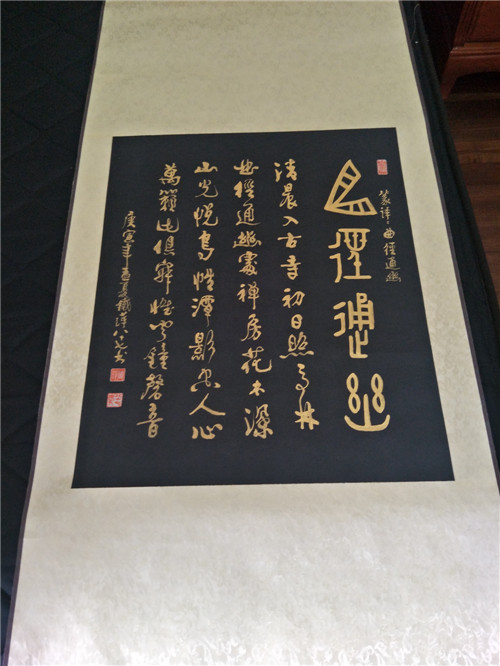 篆译：曲徑通幽
曲徑通幽
清晨入古寺初日照高林
曲徑通幽處禪房花木深
山光悅鳥性潭影空人心
萬籟此俱寂惟聞鐘磬音
庚寅年孟夏